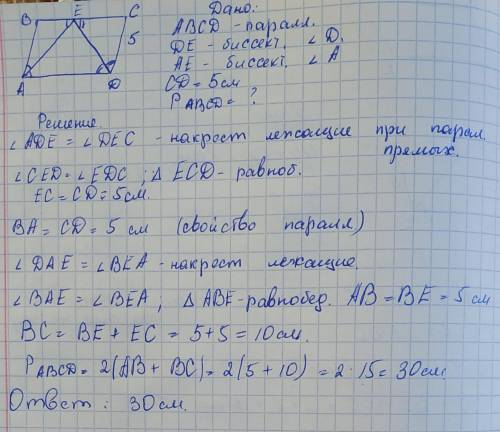 B E C
5
A D
Дано:
ABCD - паралл.
DE - биссект, ∠D,
AE - биссект, ∠A
CD = 5см
P ABCD = ?
Решение.
∠ADE = ∠DEC - накрост лежащие при парал.
прямых.
∠CED = ∠EDC ; Δ ECD - равноб.
EC = CD = 5см.
BA = CD = 5 см (свойство паралл)
∠DAE = ∠BEA - накрост лежащие.
∠BAE = ∠BEA ; Δ ABE - равнобед. AB = BE = 5 см
BC = BE + EC = 5+5 = 10см.
P ABCD = 2(AB + BC) = 2(5 + 10) = 2·15 = 30см.
Ответ: 30см.